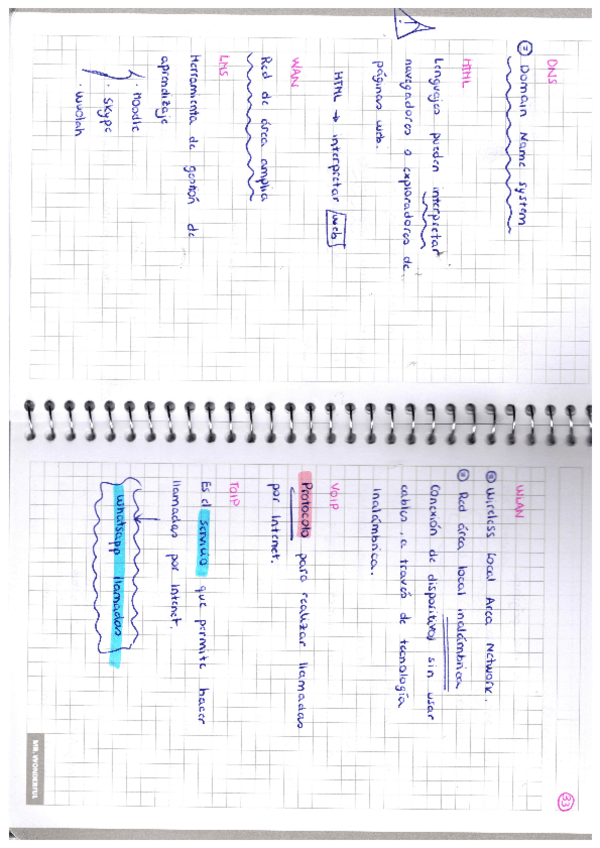 DNS
= Domain Name System
HTML
Lenguajes pueden interpretar
navegadores o exploradores de
páginas web.
HTML → interpretar web
WAN
Red de área amplia
LMS
Herramienta de gestión de
aprendizaje
· Moodle
· Skype
· wuolah
33
WLAN
Wireless Local Area Network.
Red área local inalámbrica
Conexión de dispositivos sin usar
cables, a través de tecnología
inalámbrica.
VOIP
Protocolo para realizar llamadas
por Internet.
TOIP
Es el servicio que permite hacer
llamadas por Internet.
whatsapp llamadas
MR. WONDERFUL